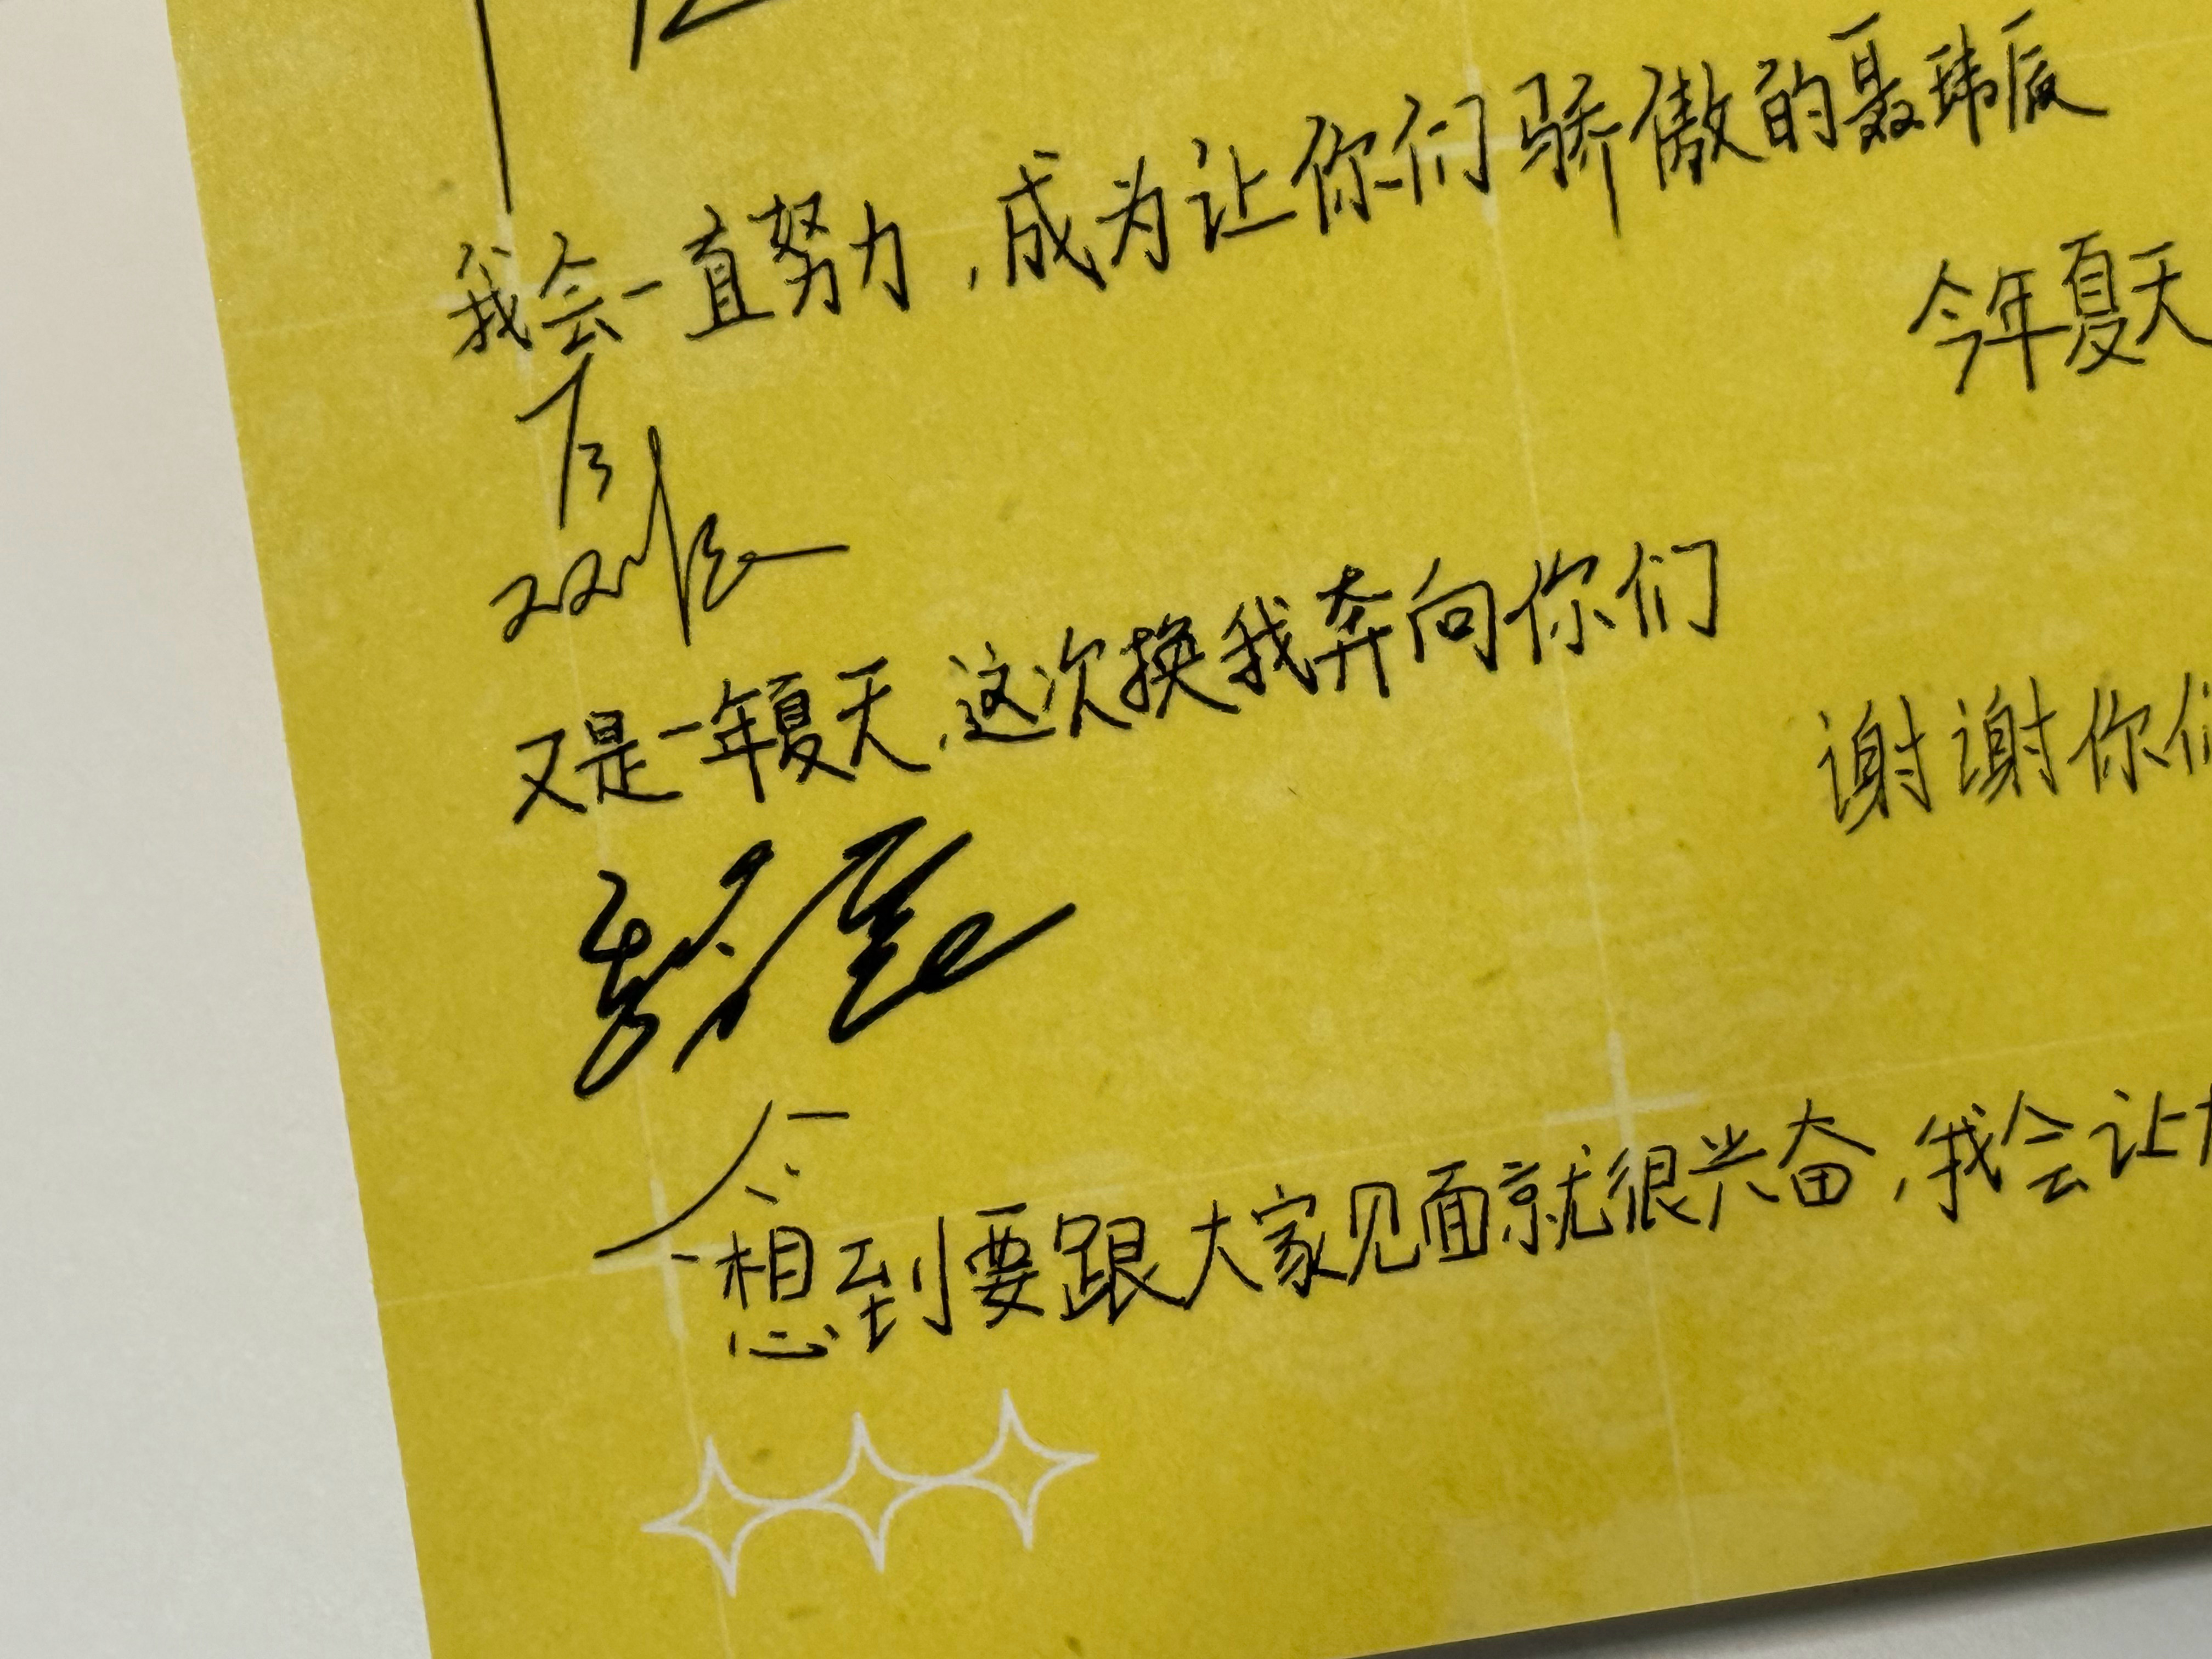 我会一直努力，成为让你们骄傲的聂玮辰
今年夏天
又是一年夏天，这次换我奔向你们
谢谢你们
一想到要跟大家见面就很兴奋，我会让